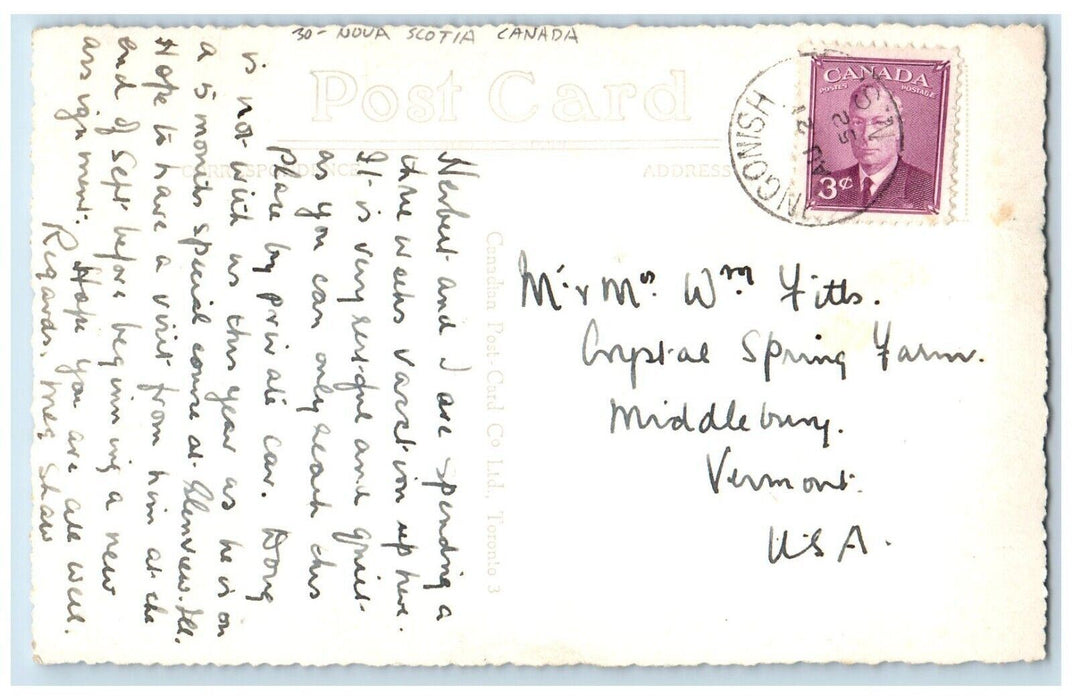 30- NOVA SCOTIA CANADA
Post Card
CORRESPONDENCE
ADDRESS
CANADA
POSTES POSTAGE
3¢
INGONISH
AU 21
52
N.S.
Herbert and I are spending a
three weeks vacation up here.
It is very restful and quiet
as you can only reach this
place by private car. Doug
is not with us this year as he is on
a 5 months special course at Glenview. Ill.
Hope to have a visit from him at the
end of Sept before beginning a new
assignment. Hope you are all well.
Regards, Meg Shaw
Canadian Post Card Co Ltd., Toronto 3
Mr & Mrs. Wm Fitts.
Crystal Spring Farm.
Middlebury.
Vermont.
USA.